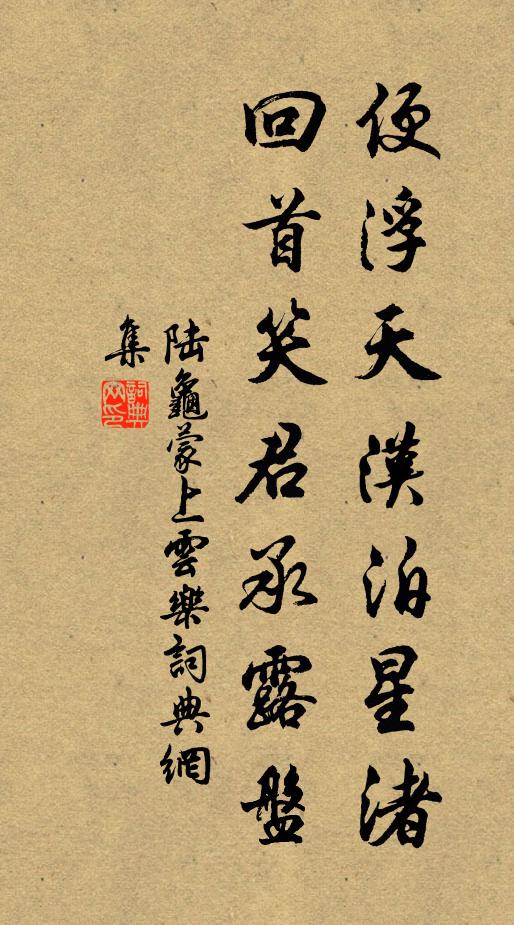 便浮天漢泊星渚
回首笑君承露盤
陸龜蒙上雲樂詞典網
集
詞典网印